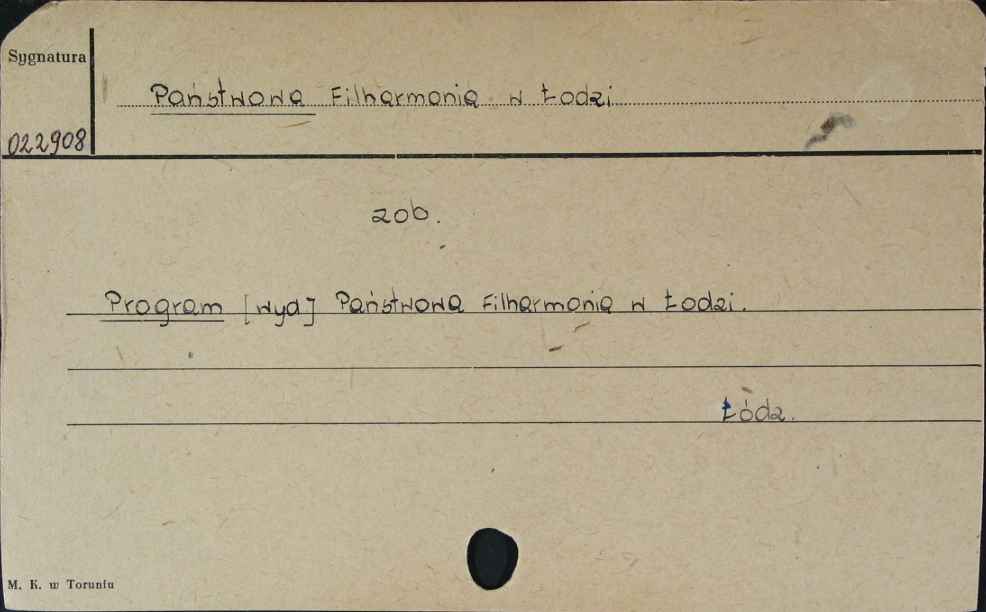 Sygnatura
Państwowa Filharmonia w Łodzi
022908
zob.
Program [wyd] Państwowa Filharmonia w Łodzi.
Łódz.
M. K. w Toruniu